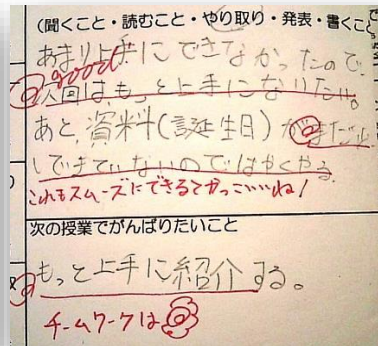 (聞くこと・読むこと・やり取り・発表・書くこと
あまり上手にできなかったので、
good
次回は、もっと上手になりたい。
あと、資料(誕生日)がまだ少
しできていないのではやくやる。
これもスムーズにできるとかっこいいね!
次の授業でがんばりたいこと
もっと上手に紹介する。
チームワークは